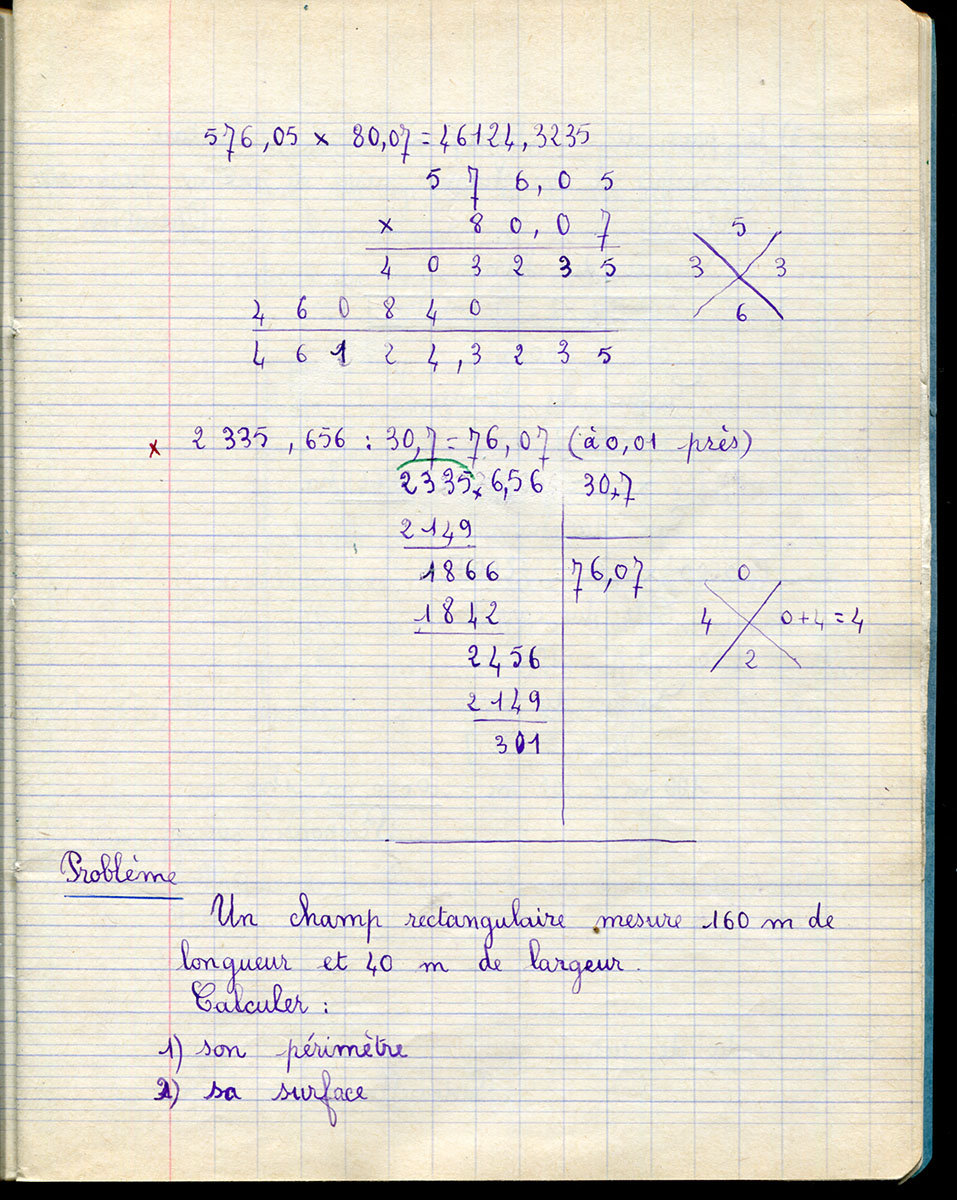 576,05 × 80,07 = 46124,3235
5 7 6,0 5
× 8 0,0 7
4 0 3 2 3 5
4 6 0 8 4 0
4 6 1 2 4,3 2 3 5
5
3 3
6
× 2 335,656 : 30,7 = 76,07 (à 0,01 près)
2335×6,56 30×7
2149
1866 76,07
1842
2456
2149
301
0
4 0+4=4
2
Problème
Un champ rectangulaire mesure 160 m de
longueur et 40 m de largeur.
Calculer :
1) son périmètre
2) sa surface